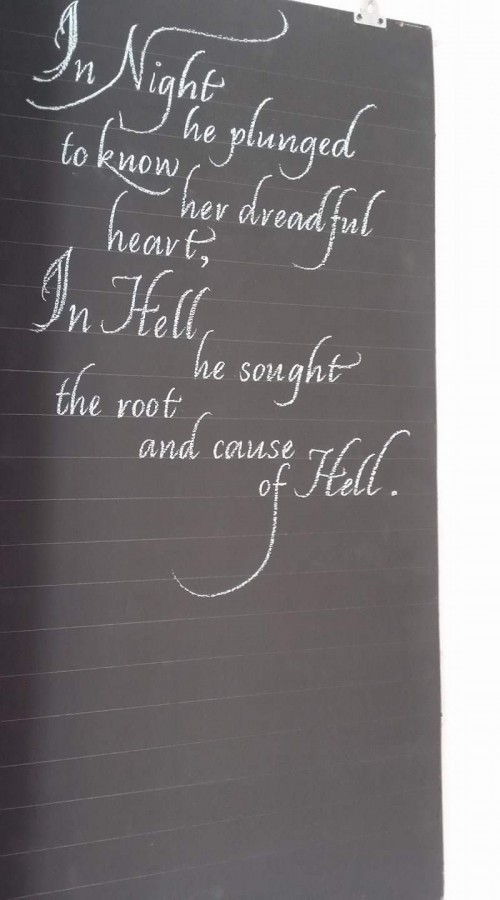 In Night
he plunged
to know
her dreadful
heart,
In Hell
he sought
the root
and cause
of Hell.